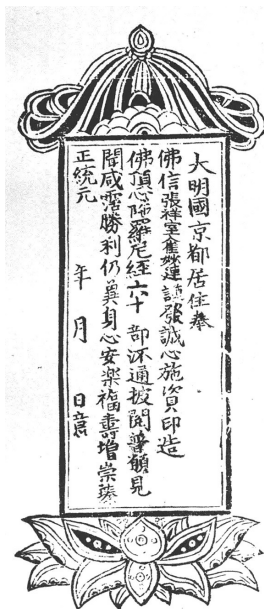 大明國京都居住奉
佛信張祥室崔妙連謹發誠心施資印造
佛頂心陁羅尼經六十部流通披閱普願見
聞咸霑勝利仍兾身心安樂福壽增崇臻
正統元年 月 日意